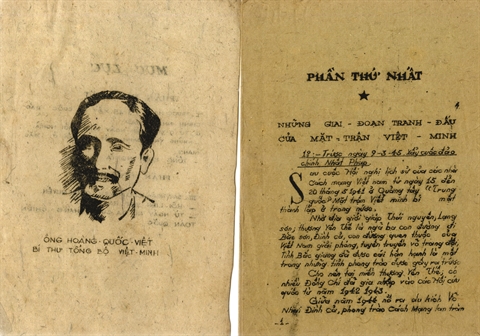 ÔNG HOÀNG-QUỐC-VIỆT
BÍ THƯ TỔNG BỘ VIỆT-MINH
PHẦN THỨ NHẤT
NHỮNG GIAI-ĐOẠN TRANH-ĐẤU
CỦA MẶT-TRẬN VIỆT-MINH
Trước ngày 9-3-45 xảy cuộc đảo
chính Nhật Pháp
Sau cuộc Hội nghị lịch sử của các nhà
Cách mạng Việt nam từ ngày 15 đến
20 tháng 5 1941 ở Quảng tây "Trung
quốc" Mặt trận Việt minh bí mật
thành lập ở trong nước.
Nhờ địa giới giáp Thái nguyên, Lạng
sơn, thượng Yên Thế là nơi ba con đường đi
Bắc sơn, Đình cả, con đường quen thuộc của
Việt Nam giải phóng, tuyên truyền và trong đó,
Tỉnh Bắc giang đã được cái hân hạnh là một
trong những tỉnh phong trào được gây ra trước.
Cho nên tại miền thượng Yên Thế, có
nhiều Đồng Chí đã gia nhập vào các Hội cứu
quốc từ năm 1942 1943.
Giữa năm 1944 nổ ra du kích Võ
Nhai Đình Cả, phong trào Cách Mạng lan tràn
-1-